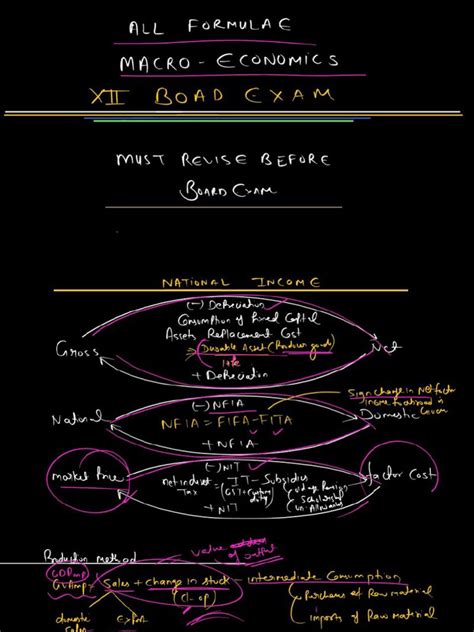 ALL FORMULAE
MACRO - ECONOMICS
XII BOAD EXAM
MUST REVISE BEFORE
BOARD EXAM
NATIONAL INCOME
(-) Depreciation
Consumption of Fixed Capital
Assets Replacement Cost
Gross
Durable Asset (Producer goods)
Net
life
+ Depreciation
Sign change in Net factor
income from abroad is
given
National
(-) NFIA
NFIA = FIFA - FITA
Domestic
+ NFIA
market Price
(-) NIT
net indirect Tax = IT - Subsidies
factor Cost
(GST + Custom duty)
+ NIT
Production method
value of output
GDPmp
GVAmp = Sales + change in stock - intermediate Consumption
(cl - op)
Purchases of Raw material
domestic Sales
Export
Imports of Raw material